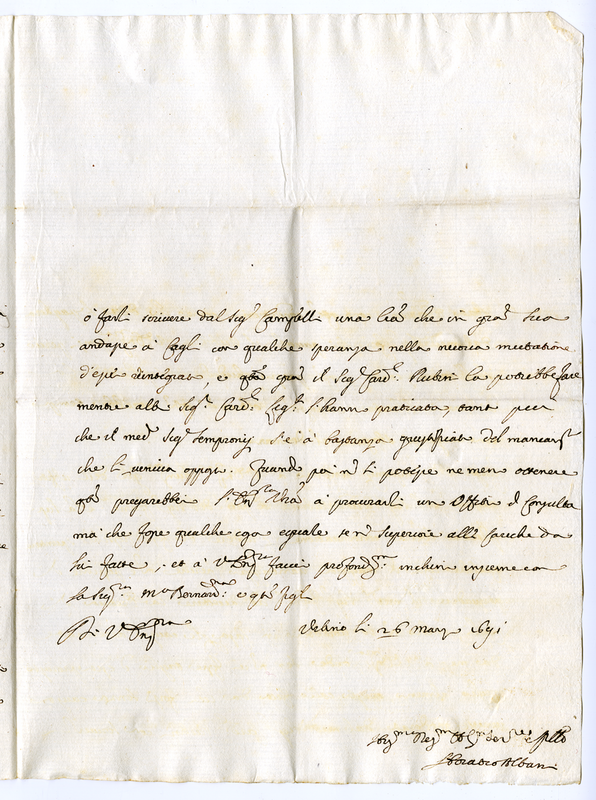 ò farli scrivere dal Sig.r Campelli una lra che in gra sua
andasse à Cagli con qualche speranza nella nuova mutatione
d'esser reintegrato, e qta gra il Sig.r Card.l Rubini la potrebbe fare
mentre alli Sig.ri Card.li l'hanno praticata, tant più
che il med.o Sig.r Sempronij s'è à bastanza giustificato del mancam.to
che li veniva opposto. Quando poi n li potesse ne meno ottenere
qto pregarebbe V.S. Ill.ma à procurarli un Offitio di Consulta
mà che fosse qualche cosa eguale se n superiore alle cariche da
lui fatte; et à V.S. Ill.ma faccio profond.mo inchino insieme con
la Sig.ra M.a Bernard.na e qti figli
Di V.S. Ill.ma
Urbino li 26 marzo 1691
Horatio Albani